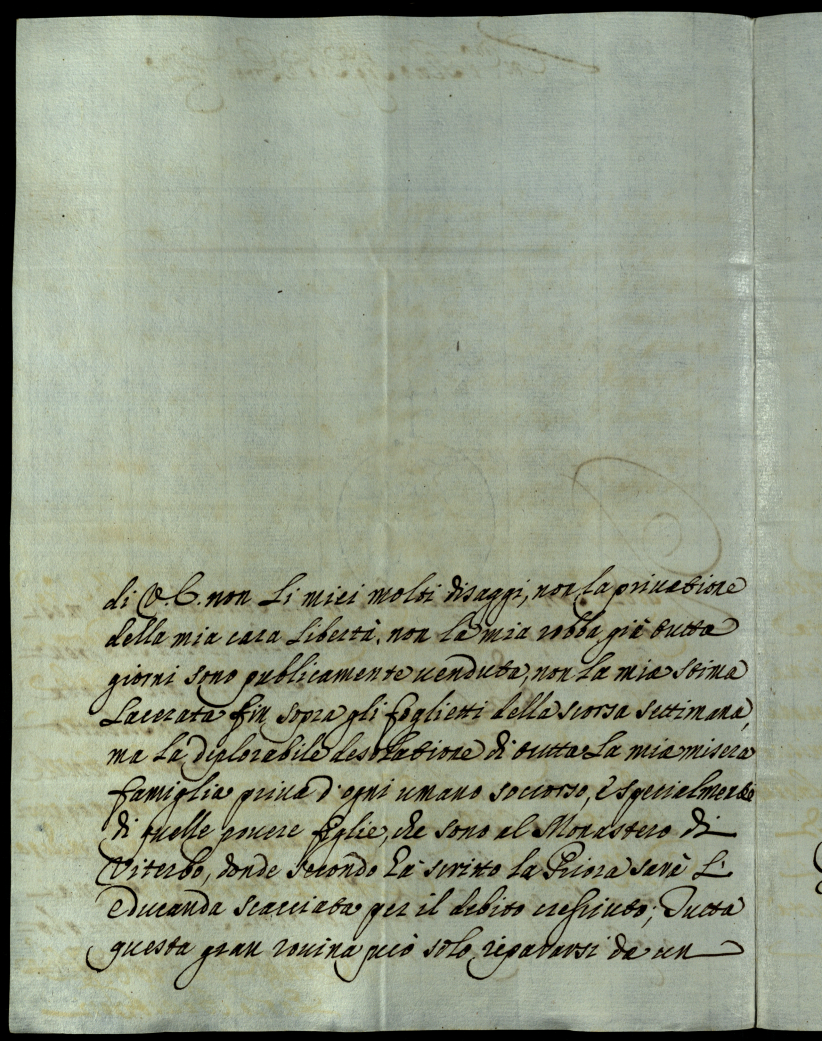 di V. E. non li miei molti disaggi, non la privatione
della mia cara libertà, non la mia robba già tutta
giorni sono publicamente venduta, non la mia stima
lacerata fin sopra gli foglietti della scorsa settimana,
ma la deplorabile desolatione di tutta la mia misera
famiglia priva d'ogni umano soccorso, è specialmente
di quelle povere figlie, che sono al Monastero di
Viterbo, donde secondo hà scritto la Priora sarè l'
educanda scacciata per il debito cresciuto; Tutta
questa gran rovina può solo ripararsi da un